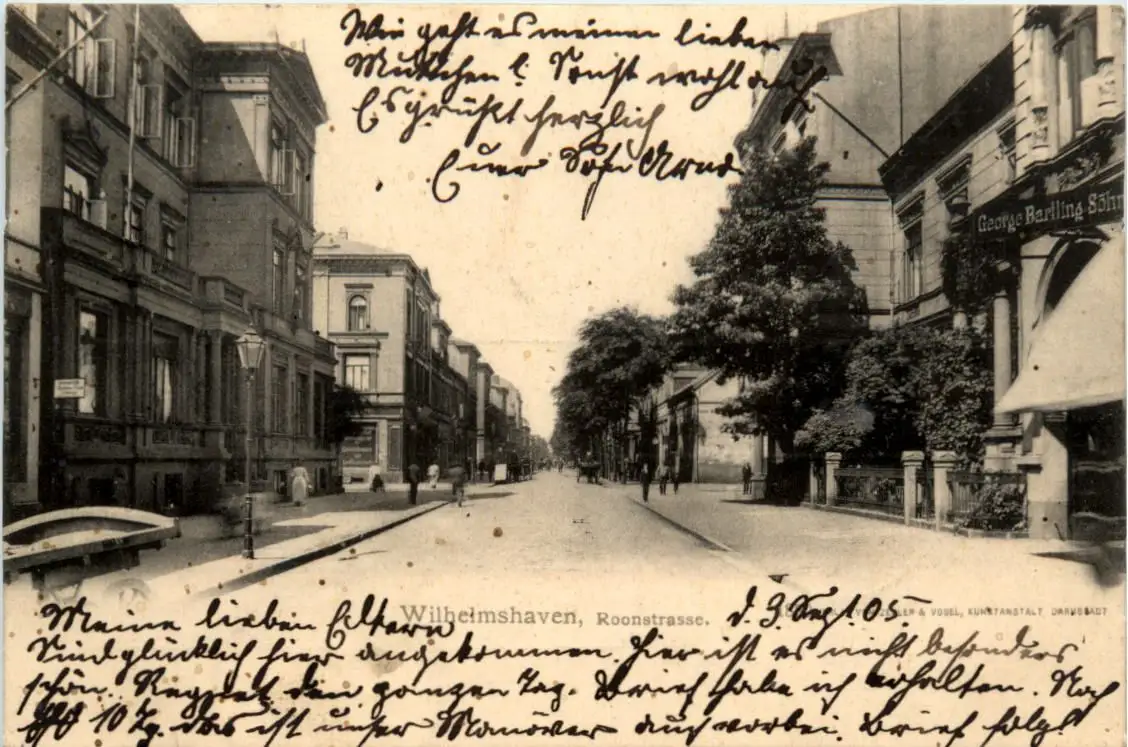 Wie geht es meinen lieben
Muttchen? Sonst wohl auf
Es grüßt herzlich
Euer Sohn Arno
George Bartling Söhn
Wilhelmshaven, Roonstrasse.
& VOGEL, KUNSTANSTALT DARMSTADT
d. 9. Sept. 05.
Meine lieben Eltern
Sind glücklich hier angekommen. Hier ist es nicht besonders
schön. Regnet den ganzen Tag. Brief habe ich erhalten. Noch
10 Tg. das ist unser Manöver auch vorbei. Brief folgt